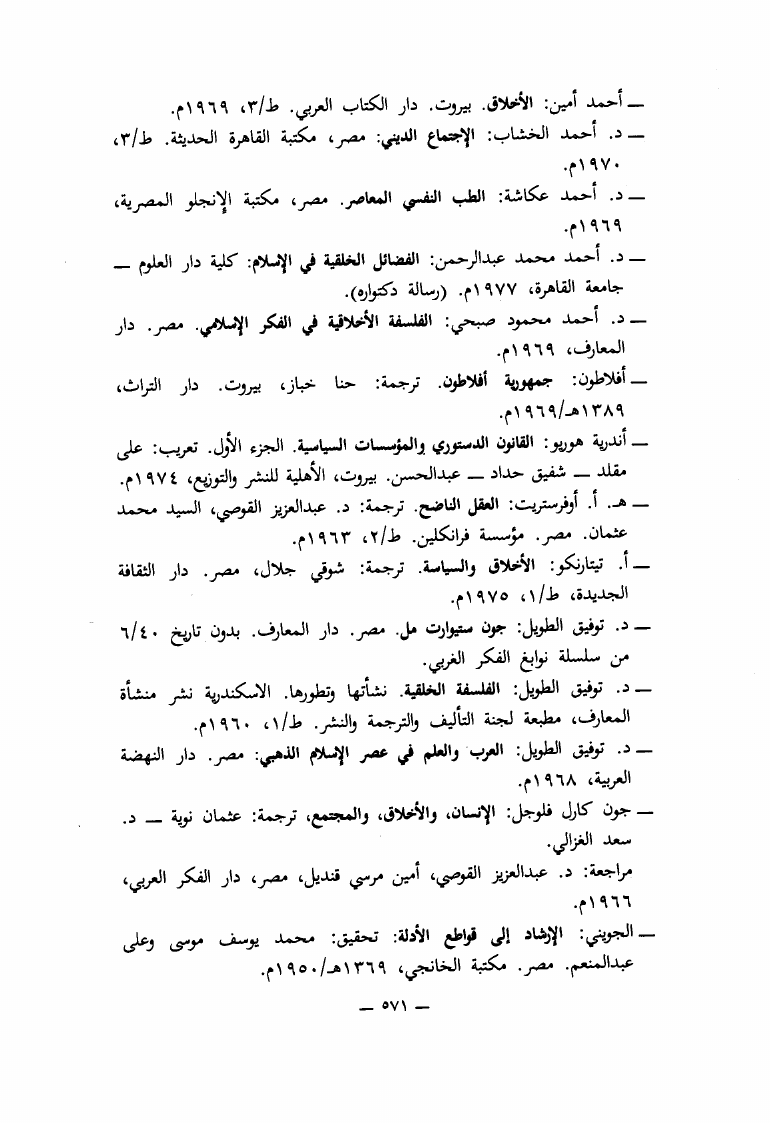 — أحمد أمين: الأخلاق. بيروت. دار الكتاب العربي. ط/٣، ١٩٦٩م.
— د. أحمد الخشاب: الإجتماع الديني: مصر، مكتبة القاهرة الحديثة. ط/٣،
١٩٧٠م.
— د. أحمد عكاشة: الطب النفسي المعاصر. مصر، مكتبة الإنجلو المصرية،
١٩٦٩م.
— د. أحمد محمد عبدالرحمن: الفضائل الخلقية في الإسلام: كلية دار العلوم —
جامعة القاهرة، ١٩٧٧م. (رسالة دكتواره).
— د. أحمد محمود صبحي: الفلسفة الأخلاقية في الفكر الإسلامي. مصر. دار
المعارف، ١٩٦٩م.
— أفلاطون: جمهورية أفلاطون. ترجمة: حنا خباز، بيروت. دار التراث،
١٣٨٩هـ/١٩٦٩م.
— أندرية هوريو: القانون الدستوري والمؤسسات السياسية. الجزء الأول. تعريب: على
مقلد — شفيق حداد — عبدالحسن. بيروت، الأهلية للنشر والتوزيع، ١٩٧٤م.
— هـ. أ. أوفرستريت: العقل الناضج. ترجمة: د. عبدالعزيز القوصي، السيد محمد
عثمان. مصر. مؤسسة فرانكلين. ط/٢، ١٩٦٣م.
— أ. تيتارنكو: الأخلاق والسياسة. ترجمة: شوقي جلال، مصر. دار الثقافة
الجديدة، ط/١، ١٩٧٥م.
— د. توفيق الطويل: جون ستيوارت مل. مصر. دار المعارف. بدون تاريخ ٦/٤٠
من سلسلة نوابغ الفكر الغربي.
— د. توفيق الطويل: الفلسفة الخلقية. نشأتها وتطورها. الاسكندرية نشر منشأة
المعارف، مطبعة لجنة التأليف والترجمة والنشر. ط/١، ١٩٦٠م.
— د. توفيق الطويل: العرب والعلم في عصر الإسلام الذهبي: مصر. دار النهضة
العربية، ١٩٦٨م.
— جون كارل فلوجل: الإنسان، والأخلاق، والمجتمع، ترجمة: عثمان نوية — د.
سعد الغزالي.
مراجعة: د. عبدالعزيز القوصي، أمين مرسي قنديل، مصر، دار الفكر العربي،
١٩٦٦م.
— الجويني: الإرشاد إلى قواطع الأدلة: تحقيق: محمد يوسف موسى وعلى
عبدالمنعم. مصر. مكتبة الخانجي، ١٣٦٩هـ/١٩٥٠م.
— ٥٧١ —